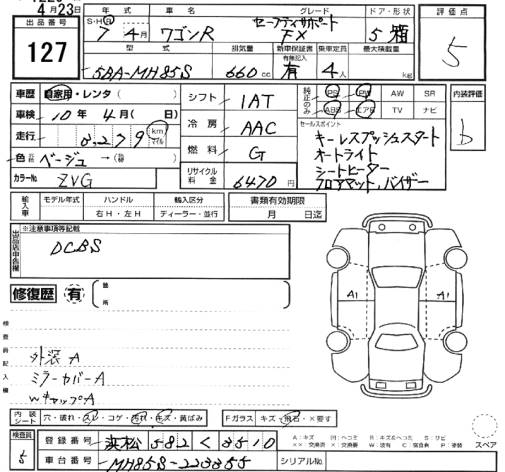 4月23日
出品番号
127
年式 車名 グレード ドア・形状
S・H・R 7年4月 ワゴンR セーフティサポート FX 5 箱
評価点
5
型式 排気量 新車保証書 有無記入 乗車定員 最大積載量
5BA-MH85S 660cc 有 4人 kg
車歴 自家用・レンタ( )
車検 10年4月( 日)
走行 8,279 km マイル
色 ベージュ→( )
カラーNo ZVG
シフト IAT
冷房 AAC
燃料 G
リサイクル料金 6470円
純正のみ PS PW AW SR
ABS エアB TV ナビ
セールスポイント
キーレスプッシュスタート
オートライト
シートヒーター
フロアマット、バイザー
内装評価
b
輸入車 モデル年式 ハンドル 輸入区分
右H・左H ディーラー・並行
書類有効期限
月 日迄
出品店申告欄
※注意事項等記載
DCBS
修復歴 有 箇所
検査員記入欄
外装A
ミラーカバーA
WキャップA
A1 A1
内装シート 穴・破れ・スレ・コゲ・汚れ・キズ・黄ばみ
Fガラス キズ・飛石・×要す
スペア
検査員 5
登録番号 浜松 582 く 3510
車台番号 MH85S-223355
シリアルNo.
A:キズ U:ヘコミ B:キズ&ヘコミ S:サビ
××:交換済 X:交換要 W:波有 C:腐食 P:塗装